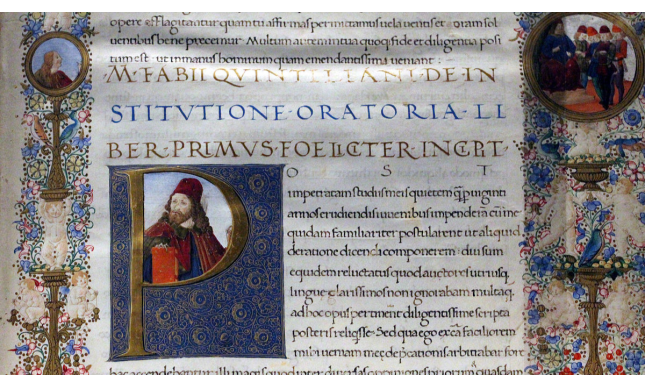 opere efflagitantur quantu affirmas permittamus vela ventis et oram sol
uentibus bene precemur. Multum autem in tua quoq fide et diligentia posi
tum est ut in manus hominum quam emendatissimi ueniant:
M·FABII QVINTILIANI·DE·IN
STITVTIONE·ORATORIA·LI
BER·PRIMVS·FOELICITER·INCIPIT·
P O S T
impetratam studiis meis quietem q p uiginti
annos erudiendis iuuenibus impenderam cu me
quidam familiariter postularent ut aliquid
de ratione dicendi componerem: diu sum
equidem reluctatus quod auctores utriusq
lingue clarissimos non ignorabam multaq
ad hoc opus pertinent diligentissime scripta
posteris reliqsse. Sed qua ego exca faciliorem
mihi ueniam meę deprecationis arbitrabar fore
hac accendebantur illi magis quod inter diuersas opiniones priorum quasdam